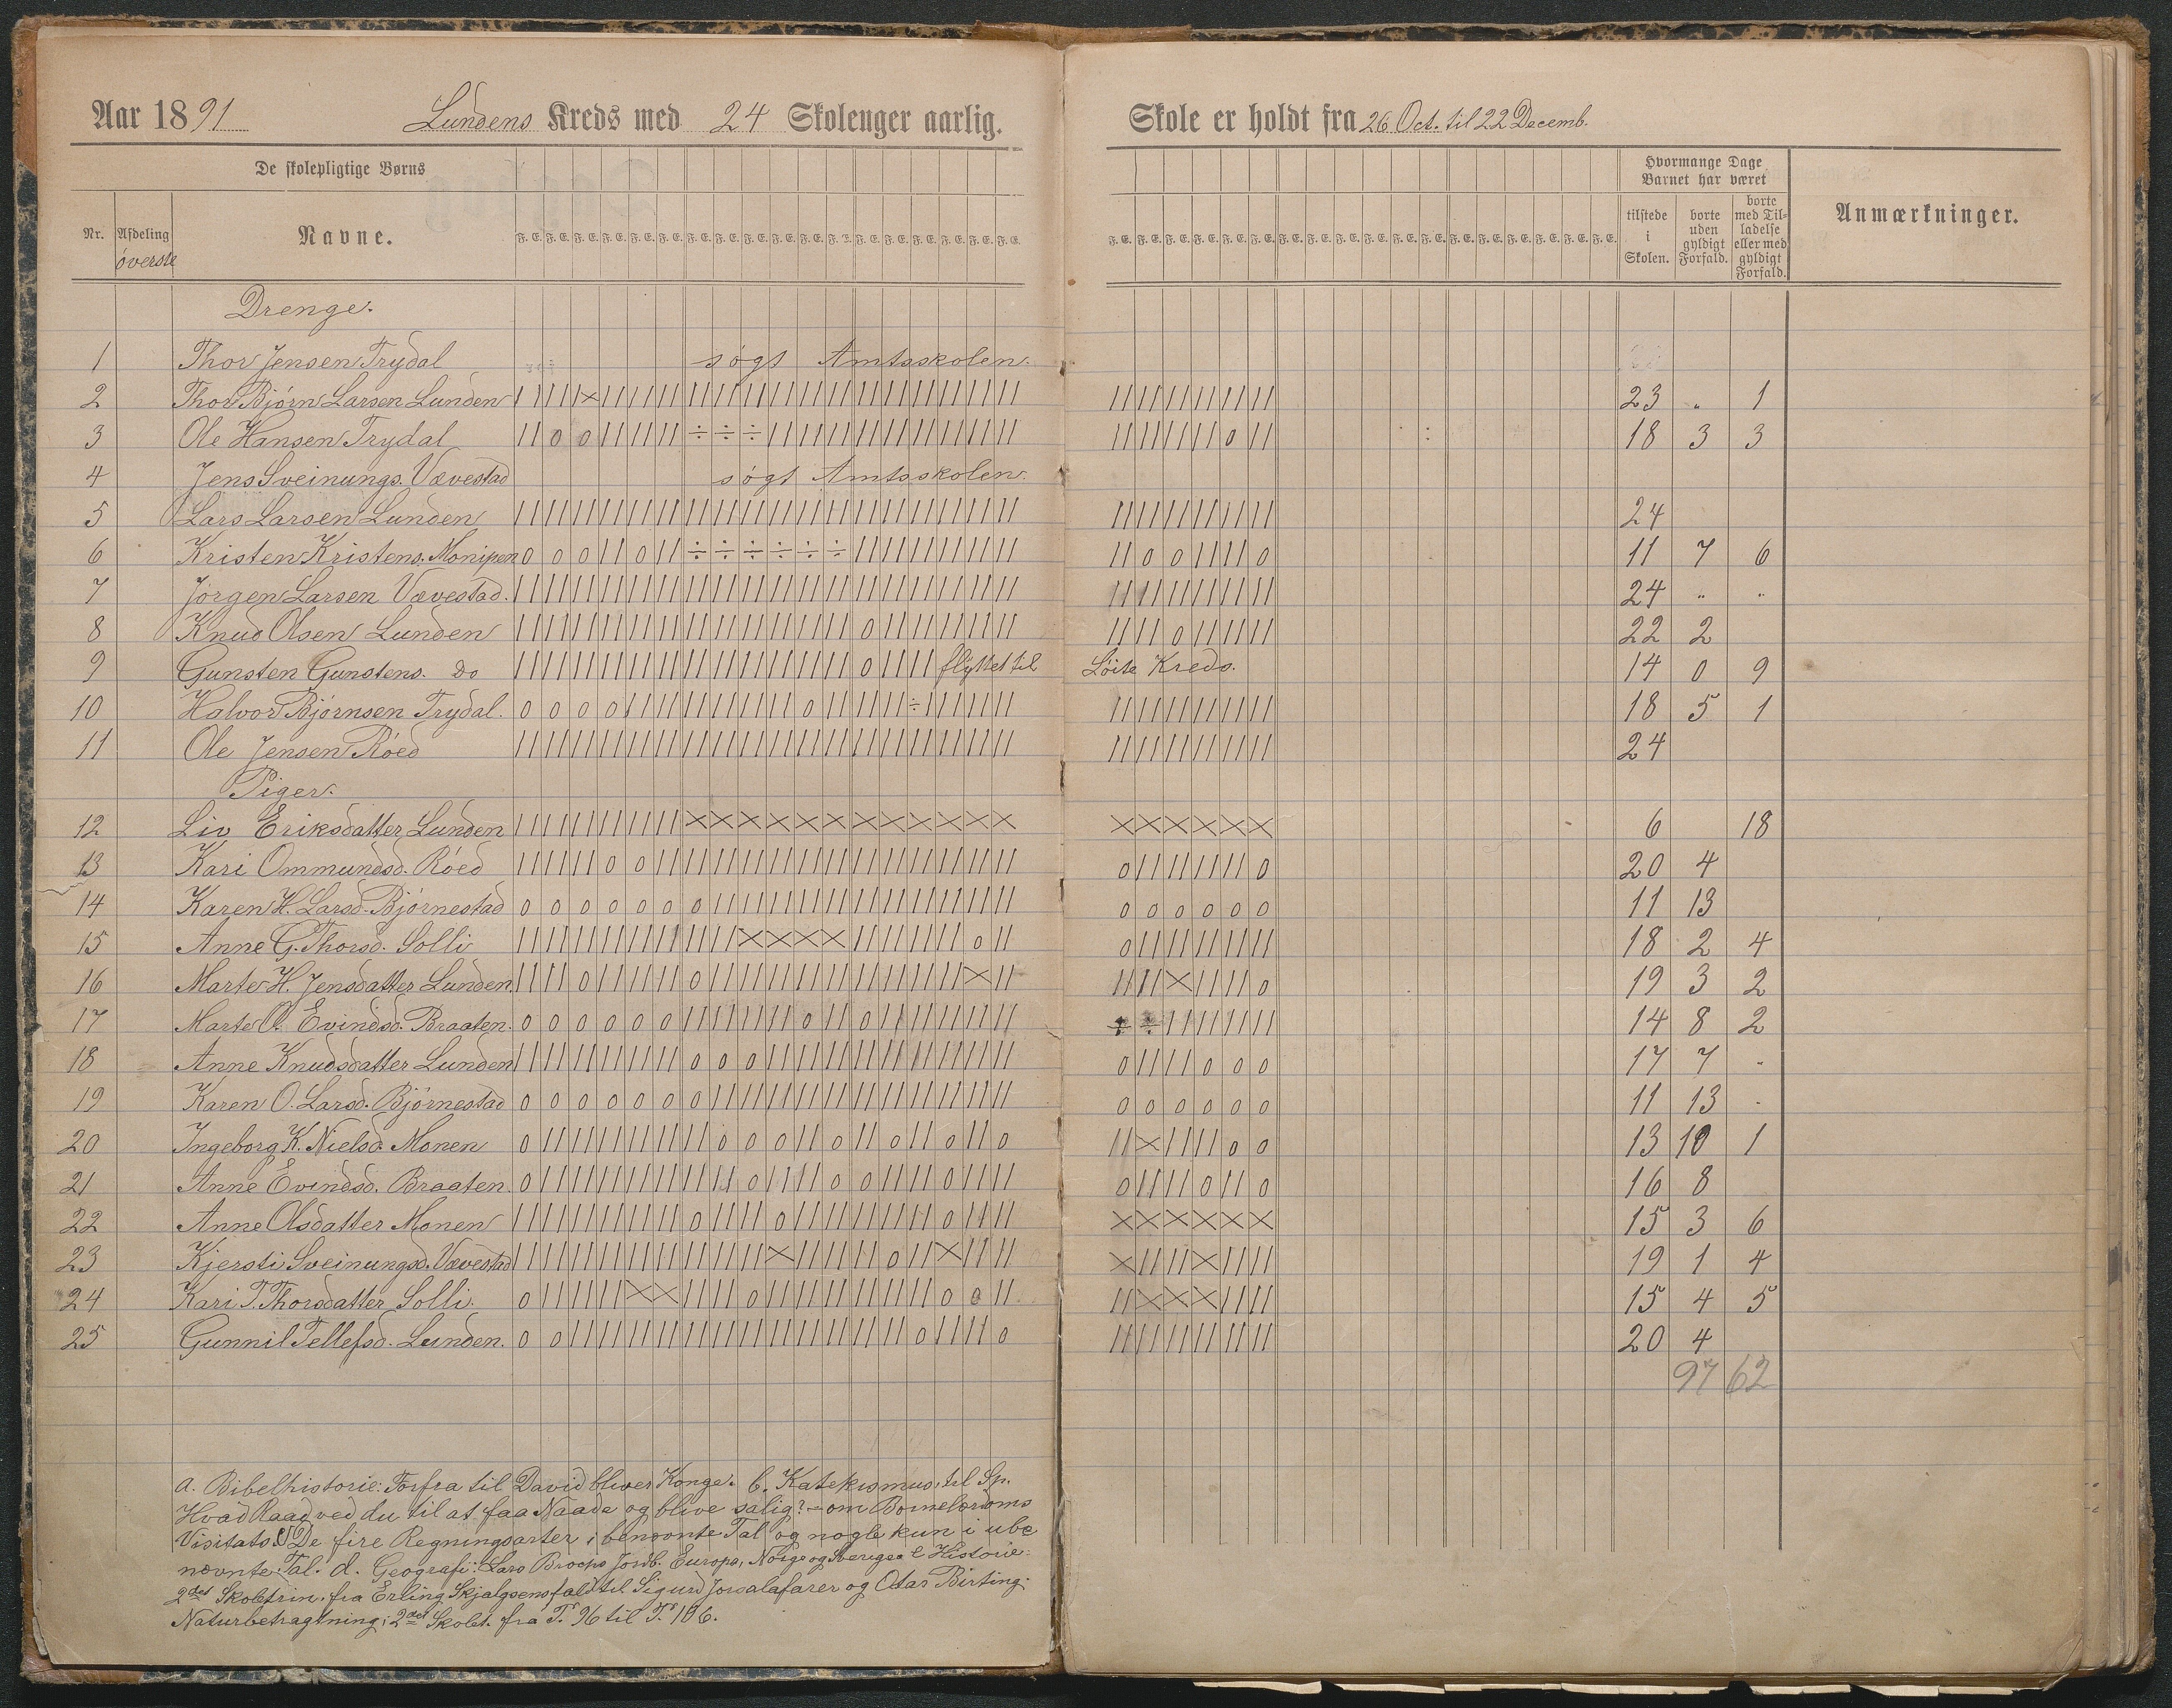 Aar 1891 Lundens Kreds med 24 Skoleuger aarlig.
Skole er holdt fra 26 Oct. til 22 Decemb.
De skolepligtige Børns
Hvormange Dage Barnet har været
Nr. Afdeling øverste Navne. F. E. F. E. F. E. F. E. F. E. F. E. F. E. F. E. F. E. F. E. F. E. F. E. F. E. F. E. F. E. F. E. F. E. F. E.
tilstede i Skolen. borte uden gyldigt Forfald. borte med Tilladelse eller med gyldigt Forfald. Anmærkninger.
Drenge.
1 Thor Jensen Trydal søgt Amtsskolen.
2 Thor Bjørn Larsen Lunden 23 " 1
3 Ole Hansen Trydal 18 3 3
4 Jens Sveinungs. Vævestad søgt Amtsskolen.
5 Lars Larsen Lunden 24
6 Kristen Kristens. Monipen 11 7 6
7 Jørgen Larsen Vævestad. 24 " "
8 Knud Olsen Lunden 22 2
9 Gunsten Gunstens. do flyttet til Løite Kreds. 14 0 9
10 Halvor Bjørnsen Trydal. 18 5 1
11 Ole Jensen Røed 24
Piger.
12 Liv Eriksdatter Lunden 6 18
13 Kari Ommundsd. Røed 20 4
14 Karen H. Larsd. Bjørnestad 11 13
15 Anne G. Thorsd. Solli 18 2 4
16 Marte H. Jensdatter Lunden 19 3 2
17 Marte O. Evindsd. Braaten. 14 8 2
18 Anne Knudsdatter Lunden 17 7 "
19 Karen O. Larsd. Bjørnestad 11 13 "
20 Ingeborg K. Nielsd. Monen 13 10 1
21 Anne Evindsd. Braaten. 16 8
22 Anne Olsdatter Monen 15 3 6
23 Kjersti Sveinungsd. Vævestad 19 1 4
24 Kari T. Thorsdatter Solli. 15 4 5
25 Gunnil Tellefsd. Lunden. 20 4
97 62
a. Bibelhistorie: Forfra til David bliver Konge. b. Katekismus, til Sp.
Hvad Raad ved du til at faa Naade og blive salig? – om Børnelærdoms
Visitats. c De fire Regningsarter i benævnte Tal og nogle kun i ube
nævnte Tal. d. Geografi: Lars Brochs Jordb. Europa, Norge og Sverige. e Historie:
2det Skoletrin. fra Erling Skjalgsens fald til Sigurd Jorsalafarer og Otar Birting.
Naturbetragtning; 2det Skolet. fra T. 96 til T. 106.